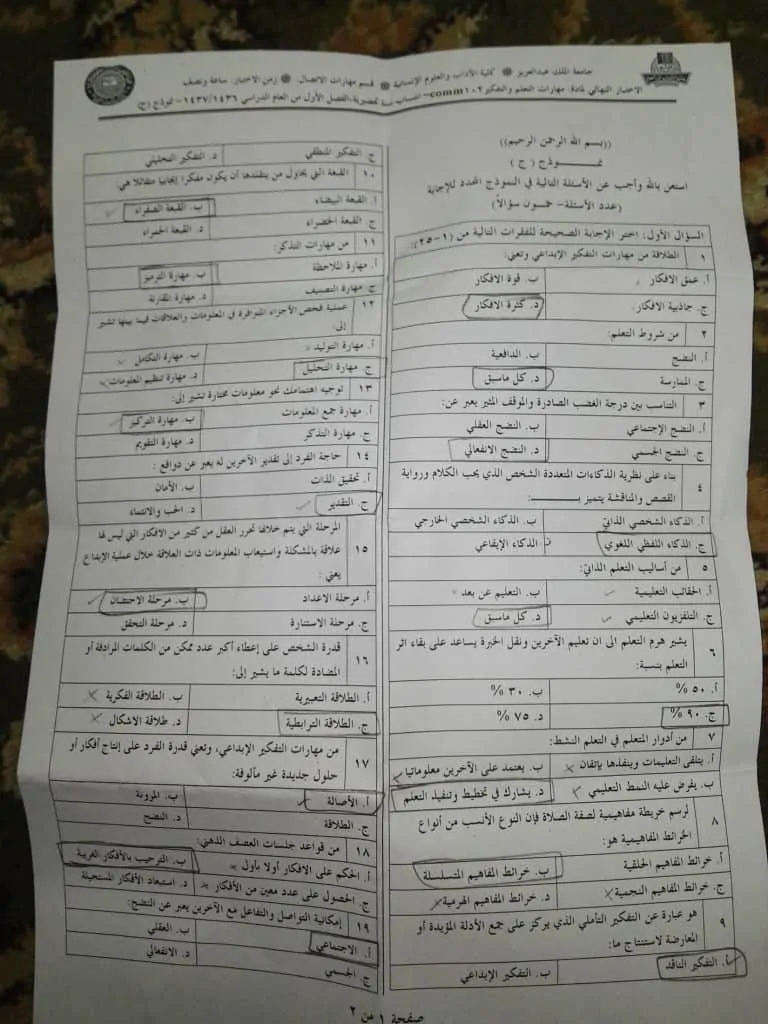 جامعة الملك عبدالعزيز ۞ كلية الآداب والعلوم الإنسانية ۞ قسم مهارات الاتصال. ۞ زمن الاختبار: ساعة ونصف
الاختبار النهائي لمادة: مهارات التعلم والتفكير comm١٠٢ – انتساب سنة تحضيرية-الفصل الأول من العام الدراسي ١٤٣٧/١٤٣٦ – نموذج (ج)
((بسم الله الرحمن الرحيم))
نمـــوذج ( ج )
استعن بالله وأجب عن الأسئلة التالية في النموذج المحدد للإجابة
(عدد الأسئلة- خمسون سؤالاً)
السؤال الأول: اختر الإجابة الصحيحة للفقرات التالية من (١-٢٥):
١ الطلاقة من مهارات التفكير الإبداعي وتعني:
أ. عمق الافكار ب. قوة الافكار
ج. جاذبية الافكار د. كثرة الافكار
٢ من شروط التعلم:
أ. النضج ب. الدافعية
ج. الممارسة د. كل ماسبق
٣ التناسب بين درجة الغضب الصادرة والموقف المثير يعبر عن:
أ. النضج الإجتماعي ب. النضج العقلي
ج. النضج الجسمي د. النضج الانفعالي
٤ بناء على نظرية الذكاءات المتعددة الشخص الذي يحب الكلام ورواية
القصص والمناقشة يتميز بـــــــــــ:
أ. الذكاء الشخصي الذاتي ب. الذكاء الشخصي الخارجي
ج. الذكاء اللفظي اللغوي د. الذكاء الإيقاعي
٥ من أساليب التعلم الذاتي:
أ. الحقائب التعليمية ب. التعليم عن بعد
ج. التلفزيون التعليمي د. كل ماسبق
٦ يشير هرم التعلم الى ان تعليم الآخرين ونقل الخبرة يساعد على بقاء اثر
التعلم بنسبة:
أ. ٥٠ % ب. ٣٠ %
ج. ٩٠ % د. ٧٥ %
٧ من أدوار المتعلم في التعلم النشط:
أ. يتلقى التعليمات وينفذها بإتقان ب. يعتمد على الآخرين معلوماتيا
ب. يفرض عليه النمط التعليمي د. يشارك في تخطيط وتنفيذ التعلم
٨ لرسم خريطة مفاهيمية لصفة الصلاة فإن النوع الأنسب من أنواع
الخرائط المفاهيمية هو:
أ. خرائط المفاهيم الحلقية ب. خرائط المفاهيم المتسلسلة
ج. خرائط المفاهيم النجمية د. خرائط المفاهيم الهرمية
٩ هو عبارة عن التفكير التأملي الذي يركز على جمع الأدلة المؤيدة أو
المعارضة لاستنتاج ما:
أ. التفكير الناقد ب. التفكير الإبداعي
ج. التفكير المنطقي د. التفكير التحليلي
١٠ القبعة التي يحاول من يتقلدها أن يكون مفكرا إيجابيا متفائلا هي:
أ. القبعة البيضاء ب. القبعة الصفراء
ج. القبعة الخضراء د. القبعة الحمراء
١١ من مهارات التذكر:
أ. مهارة الملاحظة ب. مهارة الترميز
ج. مهارة التصنيف د. مهارة المقارنة
١٢ عملية فحص الأجزاء المتوافرة في المعلومات والعلاقات فيما بينها تشير
إلى:
أ. مهارة التوليد ب. مهارة التكامل
ج. مهارة التحليل د. مهارة تنظيم المعلومات
١٣ توجيه اهتمامك نحو معلومات مختارة تشير إلى:
أ. مهارة جمع المعلومات ب. مهارة التركيز
ج. مهارة التذكر د. مهارة التقويم
١٤ حاجة الفرد إلى تقدير الآخرين له يعبر عن دوافع :
أ. تحقيق الذات ب. الأمان
ج. التقدير د. الحب والانتماء
١٥ المرحلة التي يتم خلالها تحرر العقل من كثير من الافكار التي ليس لها
علاقة بالمشكلة واستيعاب المعلومات ذات العلاقة خلال عملية الإبداع
يعني :
أ. مرحلة الاعداد ب. مرحلة الاحتضان
ج. مرحلة الاستنارة د. مرحلة التحقق
١٦ قدرة الشخص على إعطاء أكبر عدد ممكن من الكلمات المرادفة أو
المضادة لكلمة ما يشير إلى:
أ. الطلاقة التعبيرية ب. الطلاقة الفكرية
ج. الطلاقة الترابطية د. طلاقة الاشكال
١٧ من مهارات التفكير الإبداعي، وتعني قدرة الفرد على إنتاج أفكار أو
حلول جديدة غير مألوفة:
أ. الأصالة ب. المرونة
ج. الطلاقة د. النضج
١٨ من قواعد جلسات العصف الذهني:
أ. الحكم على الافكار أولا بأول ب. الترحيب بالأفكار الغريبة
ج. الحصول على عدد معين من الأفكار د. استبعاد الأفكار المستحيلة
١٩ إمكانية التواصل والتفاعل مع الآخرين يعبر عن النضج:
أ. الاجتماعي ب. العقلي
ج. الجسمي د. الانفعالي
صفحة ١ من ٢